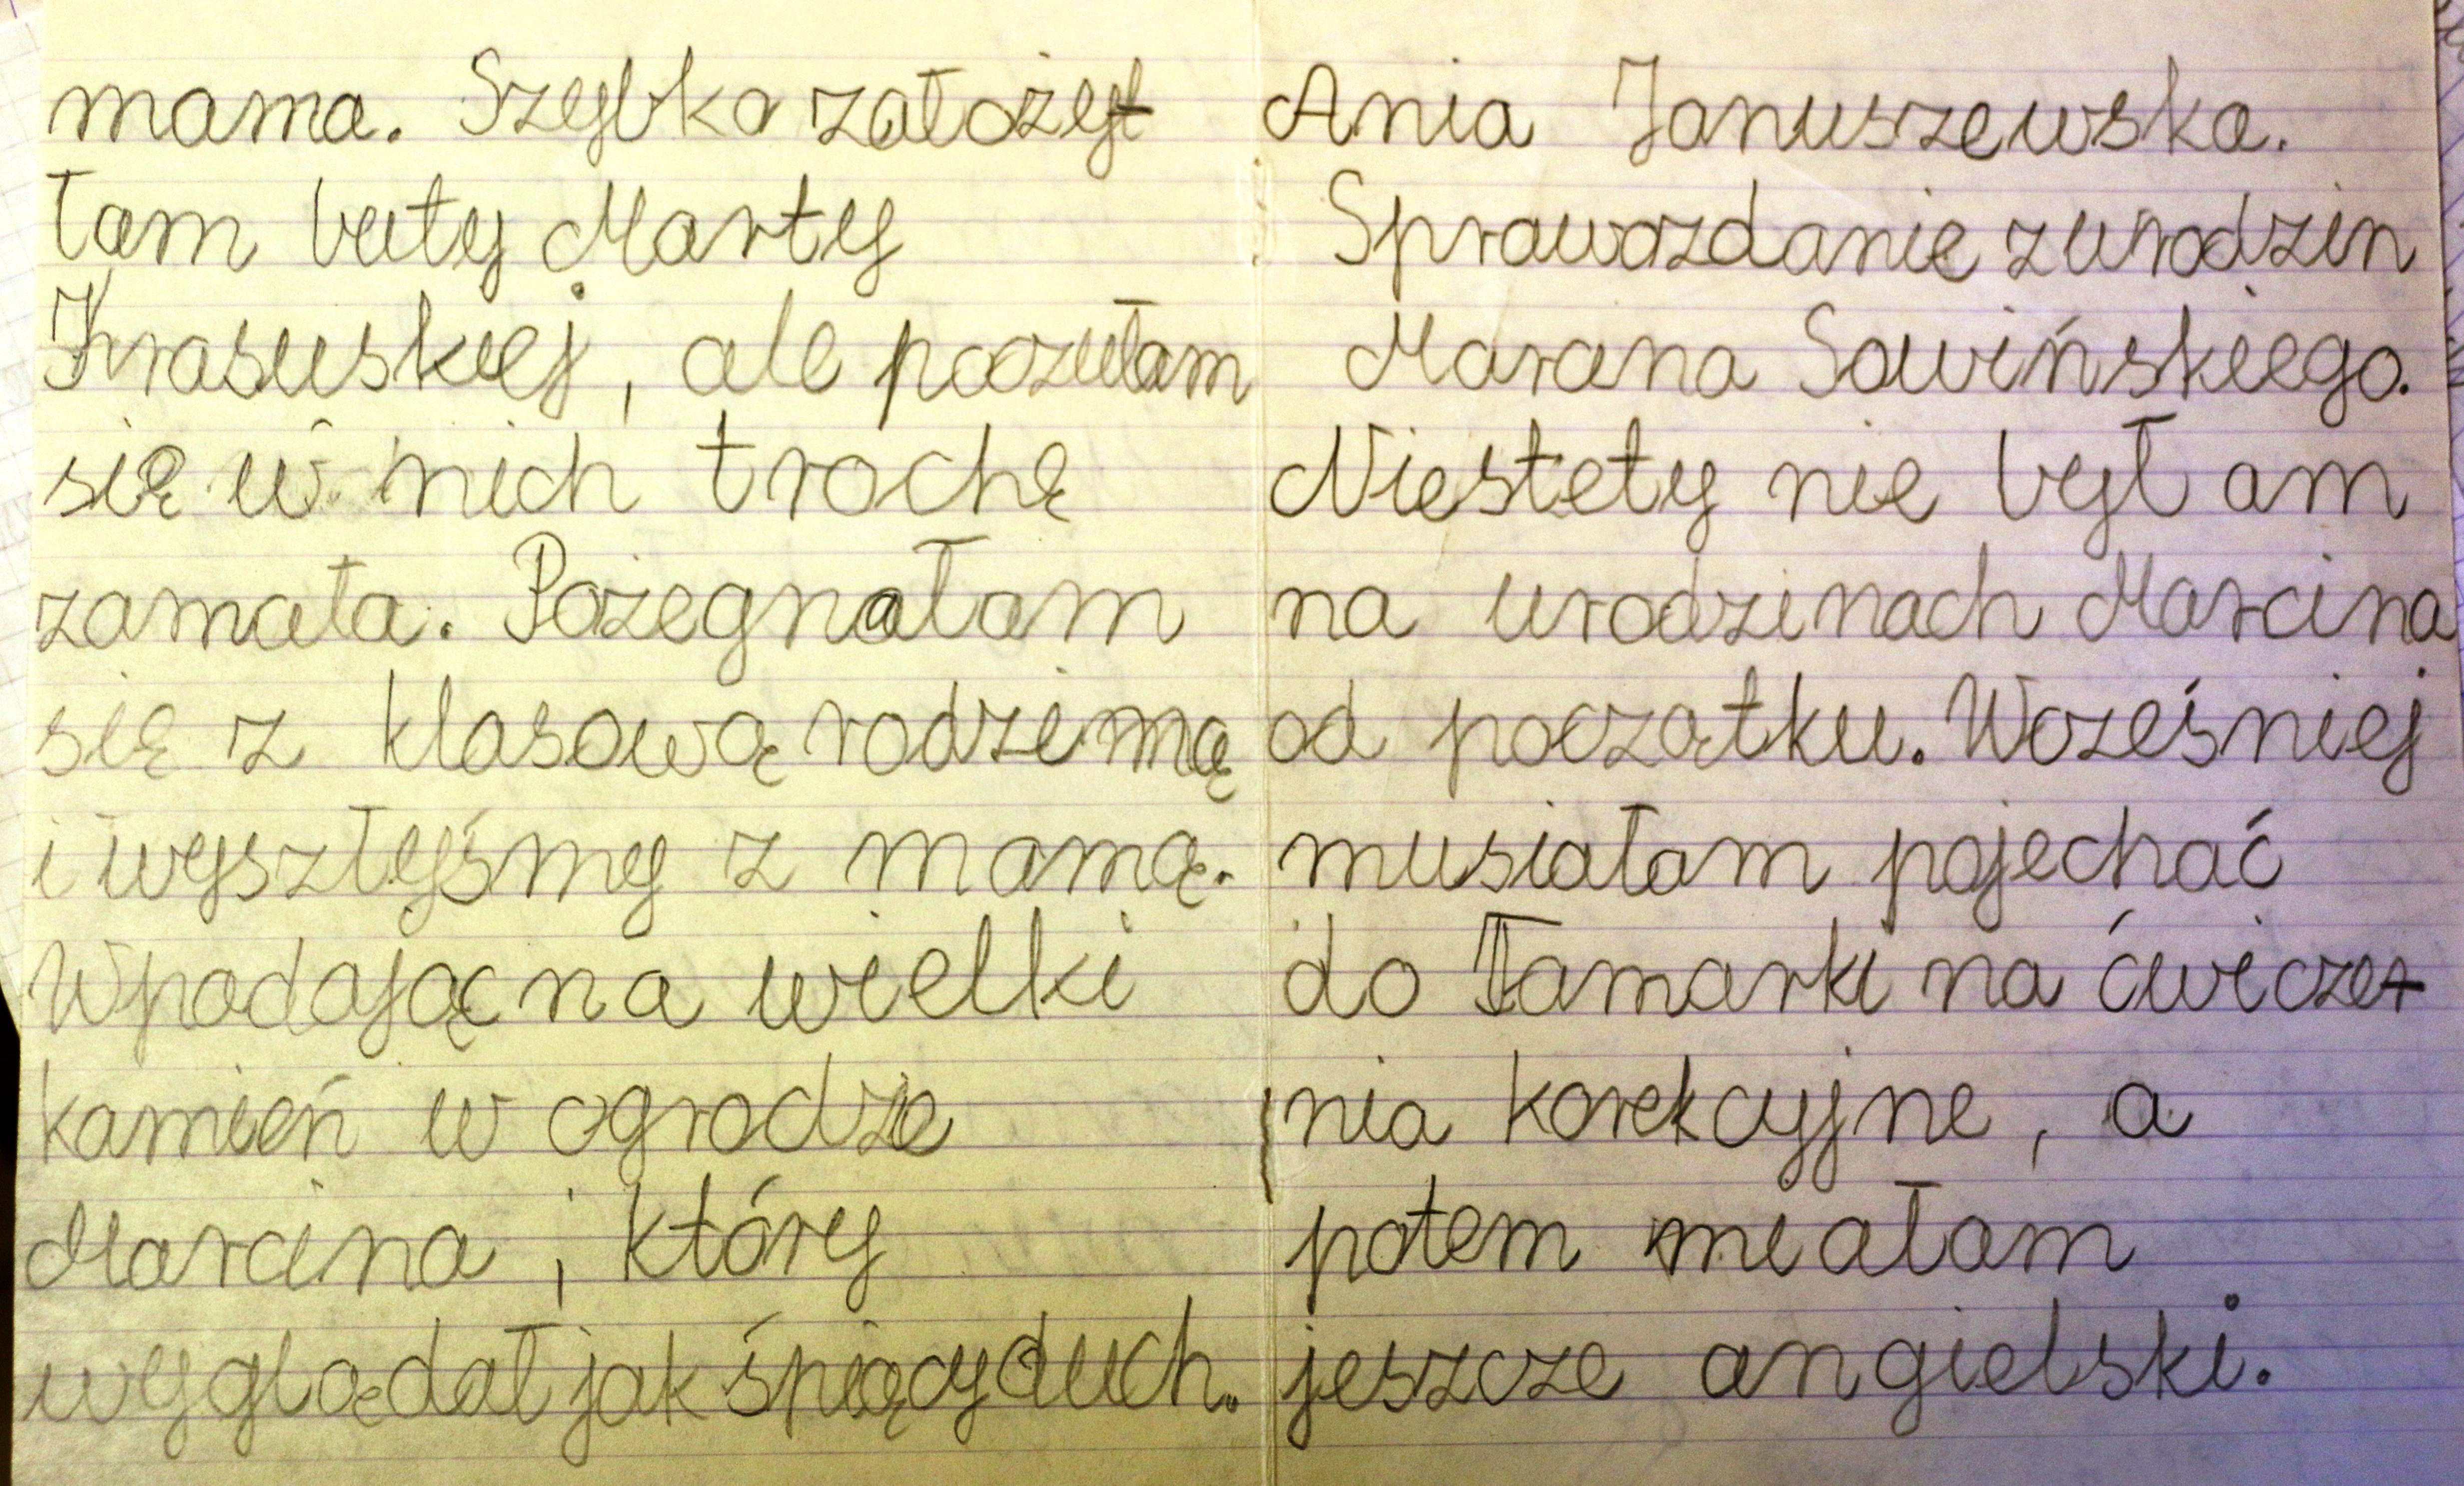 mama. Szybko założy-
łam buty Marty
Krasuskiej, ale poczułam
się w nich trochę
zamała. Pożegnałam
się z klasową rodzimą
i wyszłyśmy z mamą.
Wpadając na wielki
kamień w ogrodzie
Marcina, który
wyglądał jak śpiący duch.
Ania Januszewska.
Sprawozdanie z urodzin
Marcina Sawińskiego.
Niestety nie był am
na urodzinach Marcina
od początku. Wcześniej
musiałam pojechać
do Tamarki na ćwicze-
nia korekcyjne, a
potem miałam
jeszcze angielski.